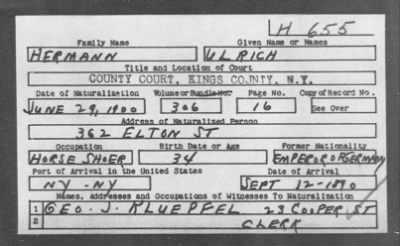 H 655
Family Name Given Name or Names
HERMANN ULRICH
Title and Location of Court
COUNTY COURT, KINGS COUNTY, N.Y.
Date of Naturalization Volume or Bundle No. Page No. Copy of Record No.
JUNE 29, 1900 306 16 See Over
Address of Naturalized Person
362 ELTON ST
Occupation Birth Date or Age Former Nationality
HORSE SHOER 34 EMPEROR OF GERMANY
Port of Arrival in the United States Date of Arrival
NY - NY SEPT 12-1890
Names, Addresses and Occupations of Witnesses To Naturalization
1 GEO. J. KLUEPFEL 23 COOPER ST
2 CLERK